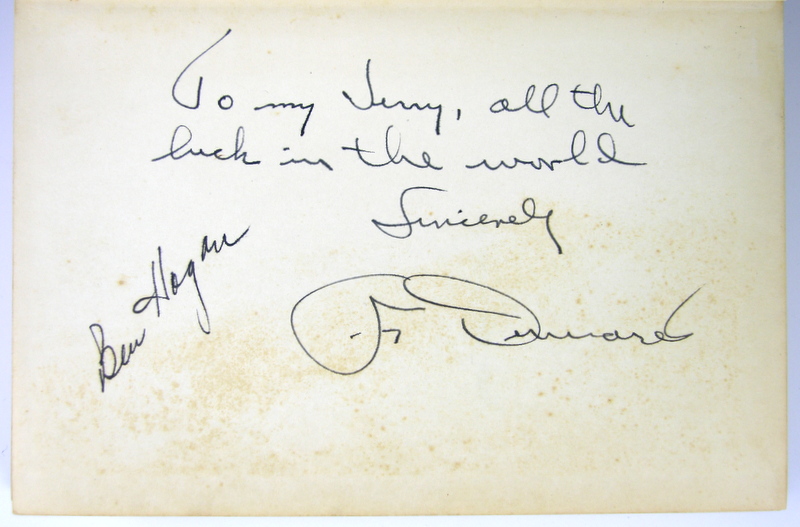 To my Jerry, all the
luck in the world
Sincerely
Ben Hogan